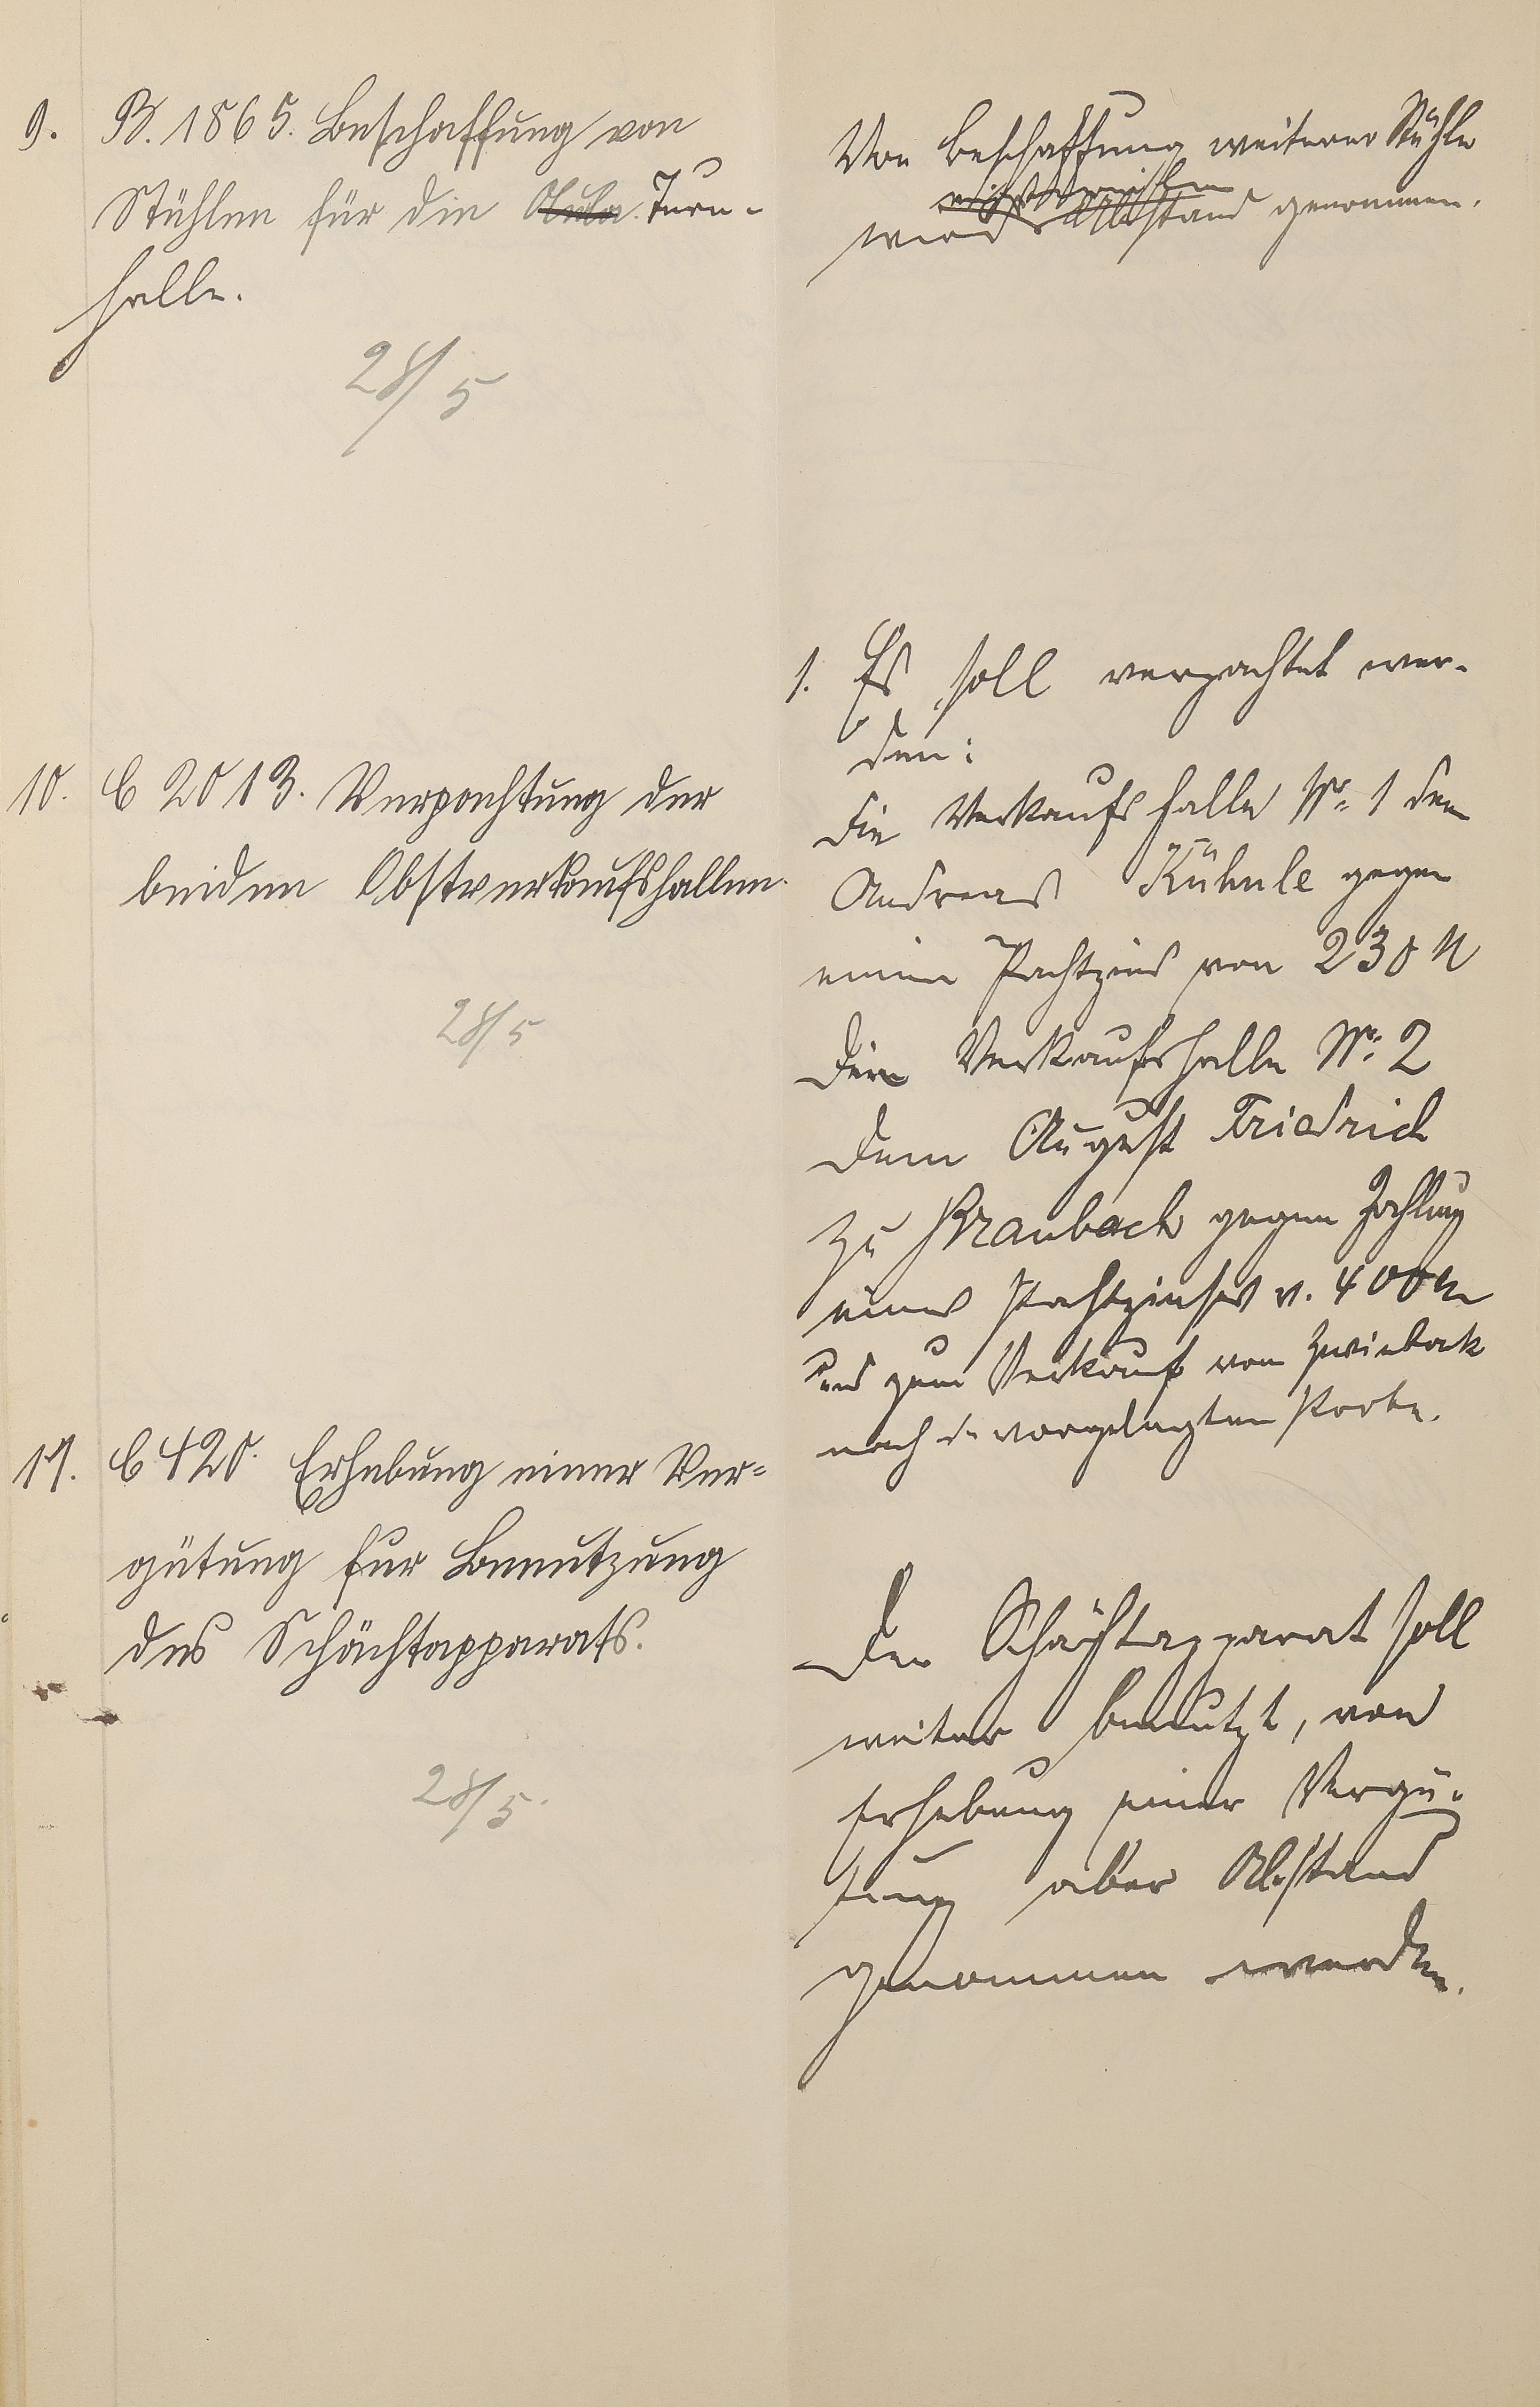 9. B. 1865. Beschaffung von
Stühlen für die Aula Turn-
halle.
28/5
Von Beschaffung weiterer Stühle
wird Abstand genommen.
10. C 2013. Verpachtung der
beiden Obstverkaufshallen.
28/5
1. Es soll verpachtet wer-
den:
die Verkaufshalle No. 1 dem
Andreas Kühnle gegen
einen Pachtzins von 230 M
Die Verkaufshalle No. 2
dem August Friedrich
zu Braubach gegen Zahlung
eines Pachtzinses v. 400 M
und zum Verkauf von Zwieback
nach d. vorgelegten Probe.
11. C 420. Erhebung einer Ver-
gütung für Benutzung
des Schächtapparats.
28/5.
Der Schächtapparat soll
weiter benutzt, von
Erhebung einer Vergü-
tung aber Abstand
genommen werden.